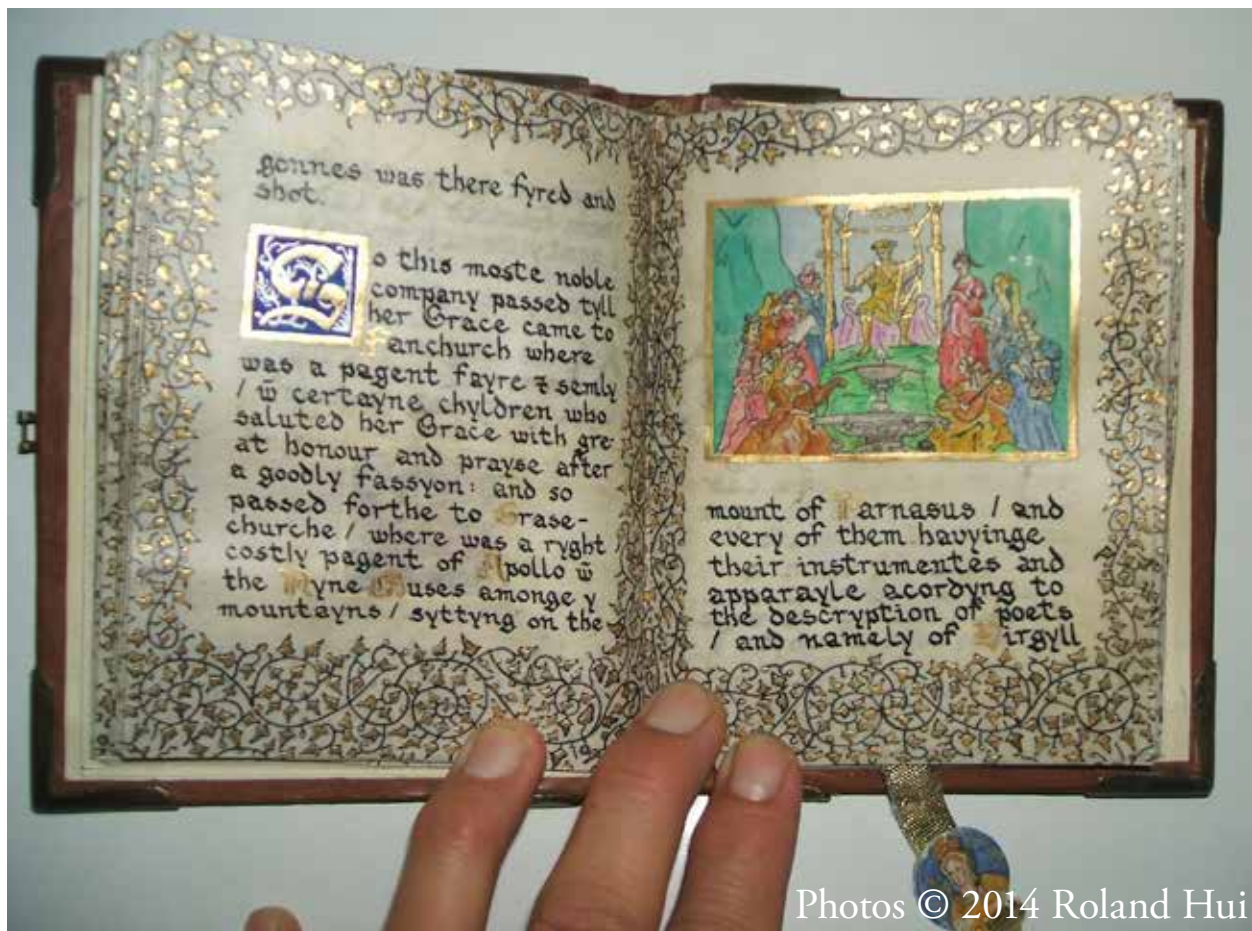 gonnes was there fyred and
shot.
So this moste noble
company passed tyll
her Grace came to
Fanchurch where
was a pagent fayre ⁊ semly
/ w̄ certayne chyldren who
saluted her Grace with gre-
at honour and prayse after
a goodly fassyon: and so
passed forthe to Grase-
churche / where was a ryght
costly pagent of Apollo w̄
the Nyne Muses amonge y
mountayns / syttyng on the
mount of Parnasus / and
every of them havyinge
their instrumentes and
apparayle acordyng to
the descryption of poets
/ and namely of Virgyll
Photos © 2014 Roland Hui